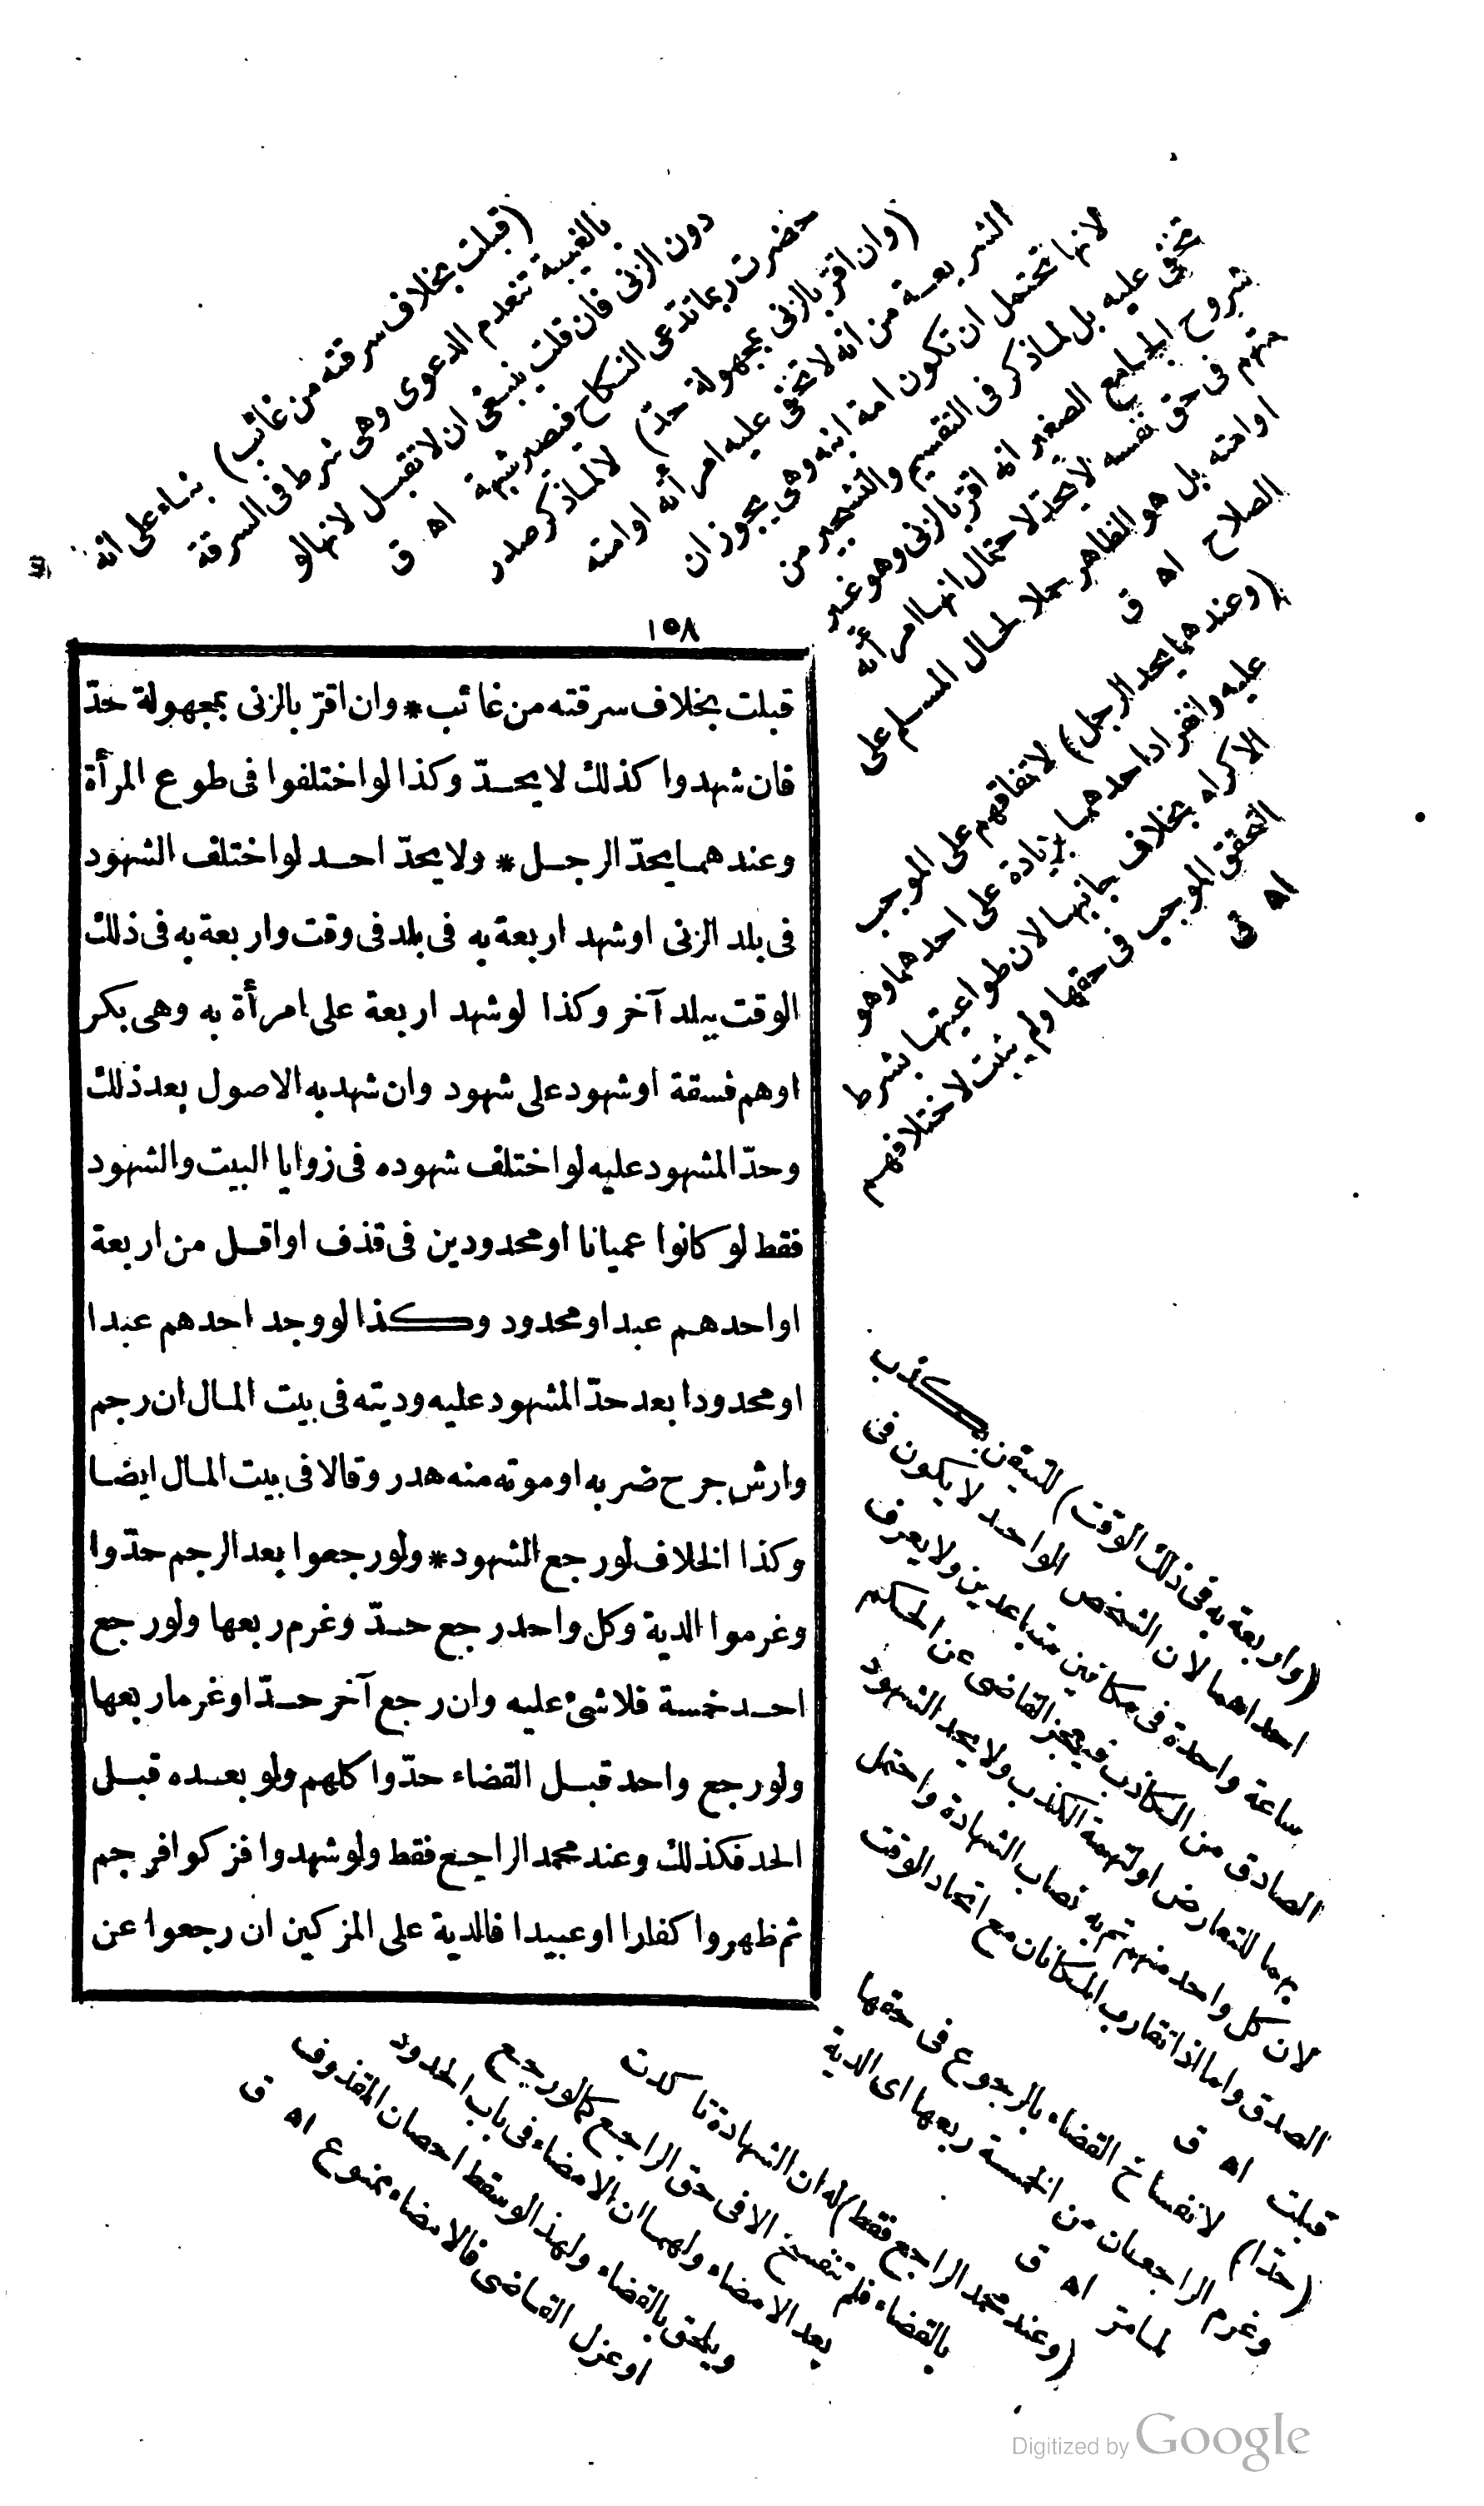 ١٥٨
قبلت بخلاف سرقته من غائب * وان اقرّ بالزنى بمجهولة حدّ
فان شهدوا كذلك لا يحدّ وكذا لو اختلفوا فى طوع المرأة
وعندهما يحدّ الرجل * ولا يحدّ احد لو اختلف الشهود
فى بلد الزنى او شهد اربعة به فى بلد فى وقت واربعة به فى ذلك
الوقت ببلد آخر وكذا لو شهد اربعة على امرأة به وهى بكر
او هم فسقة او شهود على شهود وان شهد به الاصول بعد ذلك
وحدّ المشهود عليه لو اختلف شهوده فى زوايا البيت والشهود
فقط لو كانوا عميانا او محدودين فى قذف او اقل من اربعة
او احدهم عبد او محدود وكذا لو وجد احدهم عبدا
او محدودا بعد حدّ المشهود عليه وديته فى بيت المال ان رجم
وارش جرح ضربه او موته منه هدر وقالا فى بيت المال ايضا
وكذا الخلاف لو رجع الشهود * ولو رجعوا بعد الرجم حدّوا
وغرموا الدية وكل واحد رجع حدّ وغرم ربعها ولو رجع
احد خمسة فلا شئ عليه وان رجع آخر حدّا وغرما ربعها
ولو رجع واحد قبل القضاء حدّوا كلهم ولو بعده قبل
الحد فكذلك وعند محمد الراجع فقط ولو شهدوا فزكوا فرجم
ثم ظهروا كفارا او عبيدا فالدية على المزكين ان رجعوا عن
(قبلت بخلاف سرقته من غائب) بناء على انه
بالغيبة تنعدم الدعوى وهى شرط فى السرقة
دون الزنى فان قلت ينبغى ان لا تقبل لانها لو
حضرت ربما تدعى النكاح فيصير شبهة اه ق
(وان اقرّ بالزنى بمجهولة حدّ) لا لما ذكر صدر
الشريعة من انه لا تخفى عليه امرأته او امته
لانها تحتمل ان تكون امة ابنه وهى يجوز ان
تخفى عليه بل لما ذكر فى التقسيم والتشجير من
شروح الجامع الصغير انه اقرّ بالزنى وهو غير
متهم فى حق نفسه لا يحدّ لاحتمال انها امرأته
او امته بل هو الظاهر حملا لحال المسلم على
الصلاح اه ق
(وعندهما يحد الرجل) لاتفاقهم على الموجب
عليه وانفراد احدهما بزيادة على احدهما وهو
الاكراه بخلاف جانبها لان طواعيتها شرط
تحقق الموجب فى حقها ولم يثبت لاختلافهم
اه ق
(واربعة به فى ذلك الوقت) لتيقن كذب
احداهما لان الشخص الواحد لا يكون فى
ساعة واحدة فى مكانين متباعدين ولا يعرف
الصادق من الكاذب فيعجز القاضى عن الحكم
بهما للتعارض او لتهمة الكذب ولا يحد الشهود
لان كل واحد منهم تم به نصاب الشهادة واحتمل
الصدق واما اذا تقارب المكانان مع اتحاد الوقت
قبلت اه ق
(حدّا) لانفساخ القضاء بالرجوع فى حقها
وغرم الراجعان من الخمسة ربعها اى الدية
لما مرّ اه ق
(وعند محمد الراجع فقط) له ان الشهادة تأكدت
بالقضاء فلم تنفسخ الا فى حق الراجع كما لو رجع
بعد الامضاء ولهما ان الامضاء فى باب الحدود
ويلحق بالقضاء ولهذا لو سقط احصان المقذوف
او عزل القاضى فالامضاء ممنوع اه ق
Digitized by Google